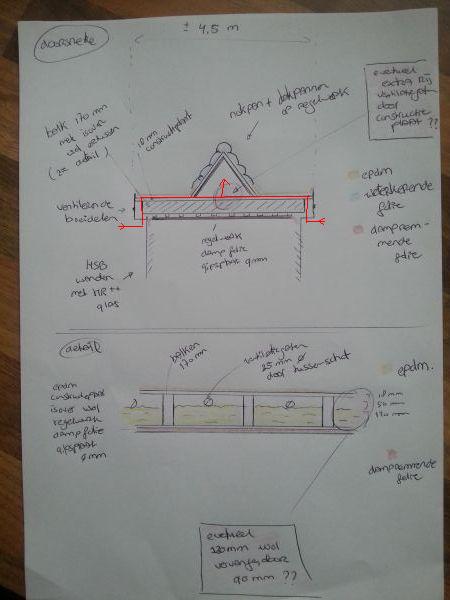 doorsnede
± 4,5 m
balk 170 mm
met isover
wol ertussen
(zie detail)
18 mm
constructieplaat
nokpan + dakpannen
op regelwerk
eventueel
extra rij
ventilatiegaten
door
constructie
plaat ??
epdm
waterkerende
folie
dampremmende
folie
ventilerende
boeidelen
HSB
wanden
met HR++
glas
regelwerk
damp folie
gipsplaat 9mm
detail
balken
170mm
ventilatiegaten
25 mm ø
door tussenschot
epdm
constructieplaat
isover wol
regelwerk
dampfolie
gipsplaat
9 mm
epdm.
18 mm
50 mm
120 mm
dampremmende
folie
eventueel
120mm wol
vervangen door
90 mm ??